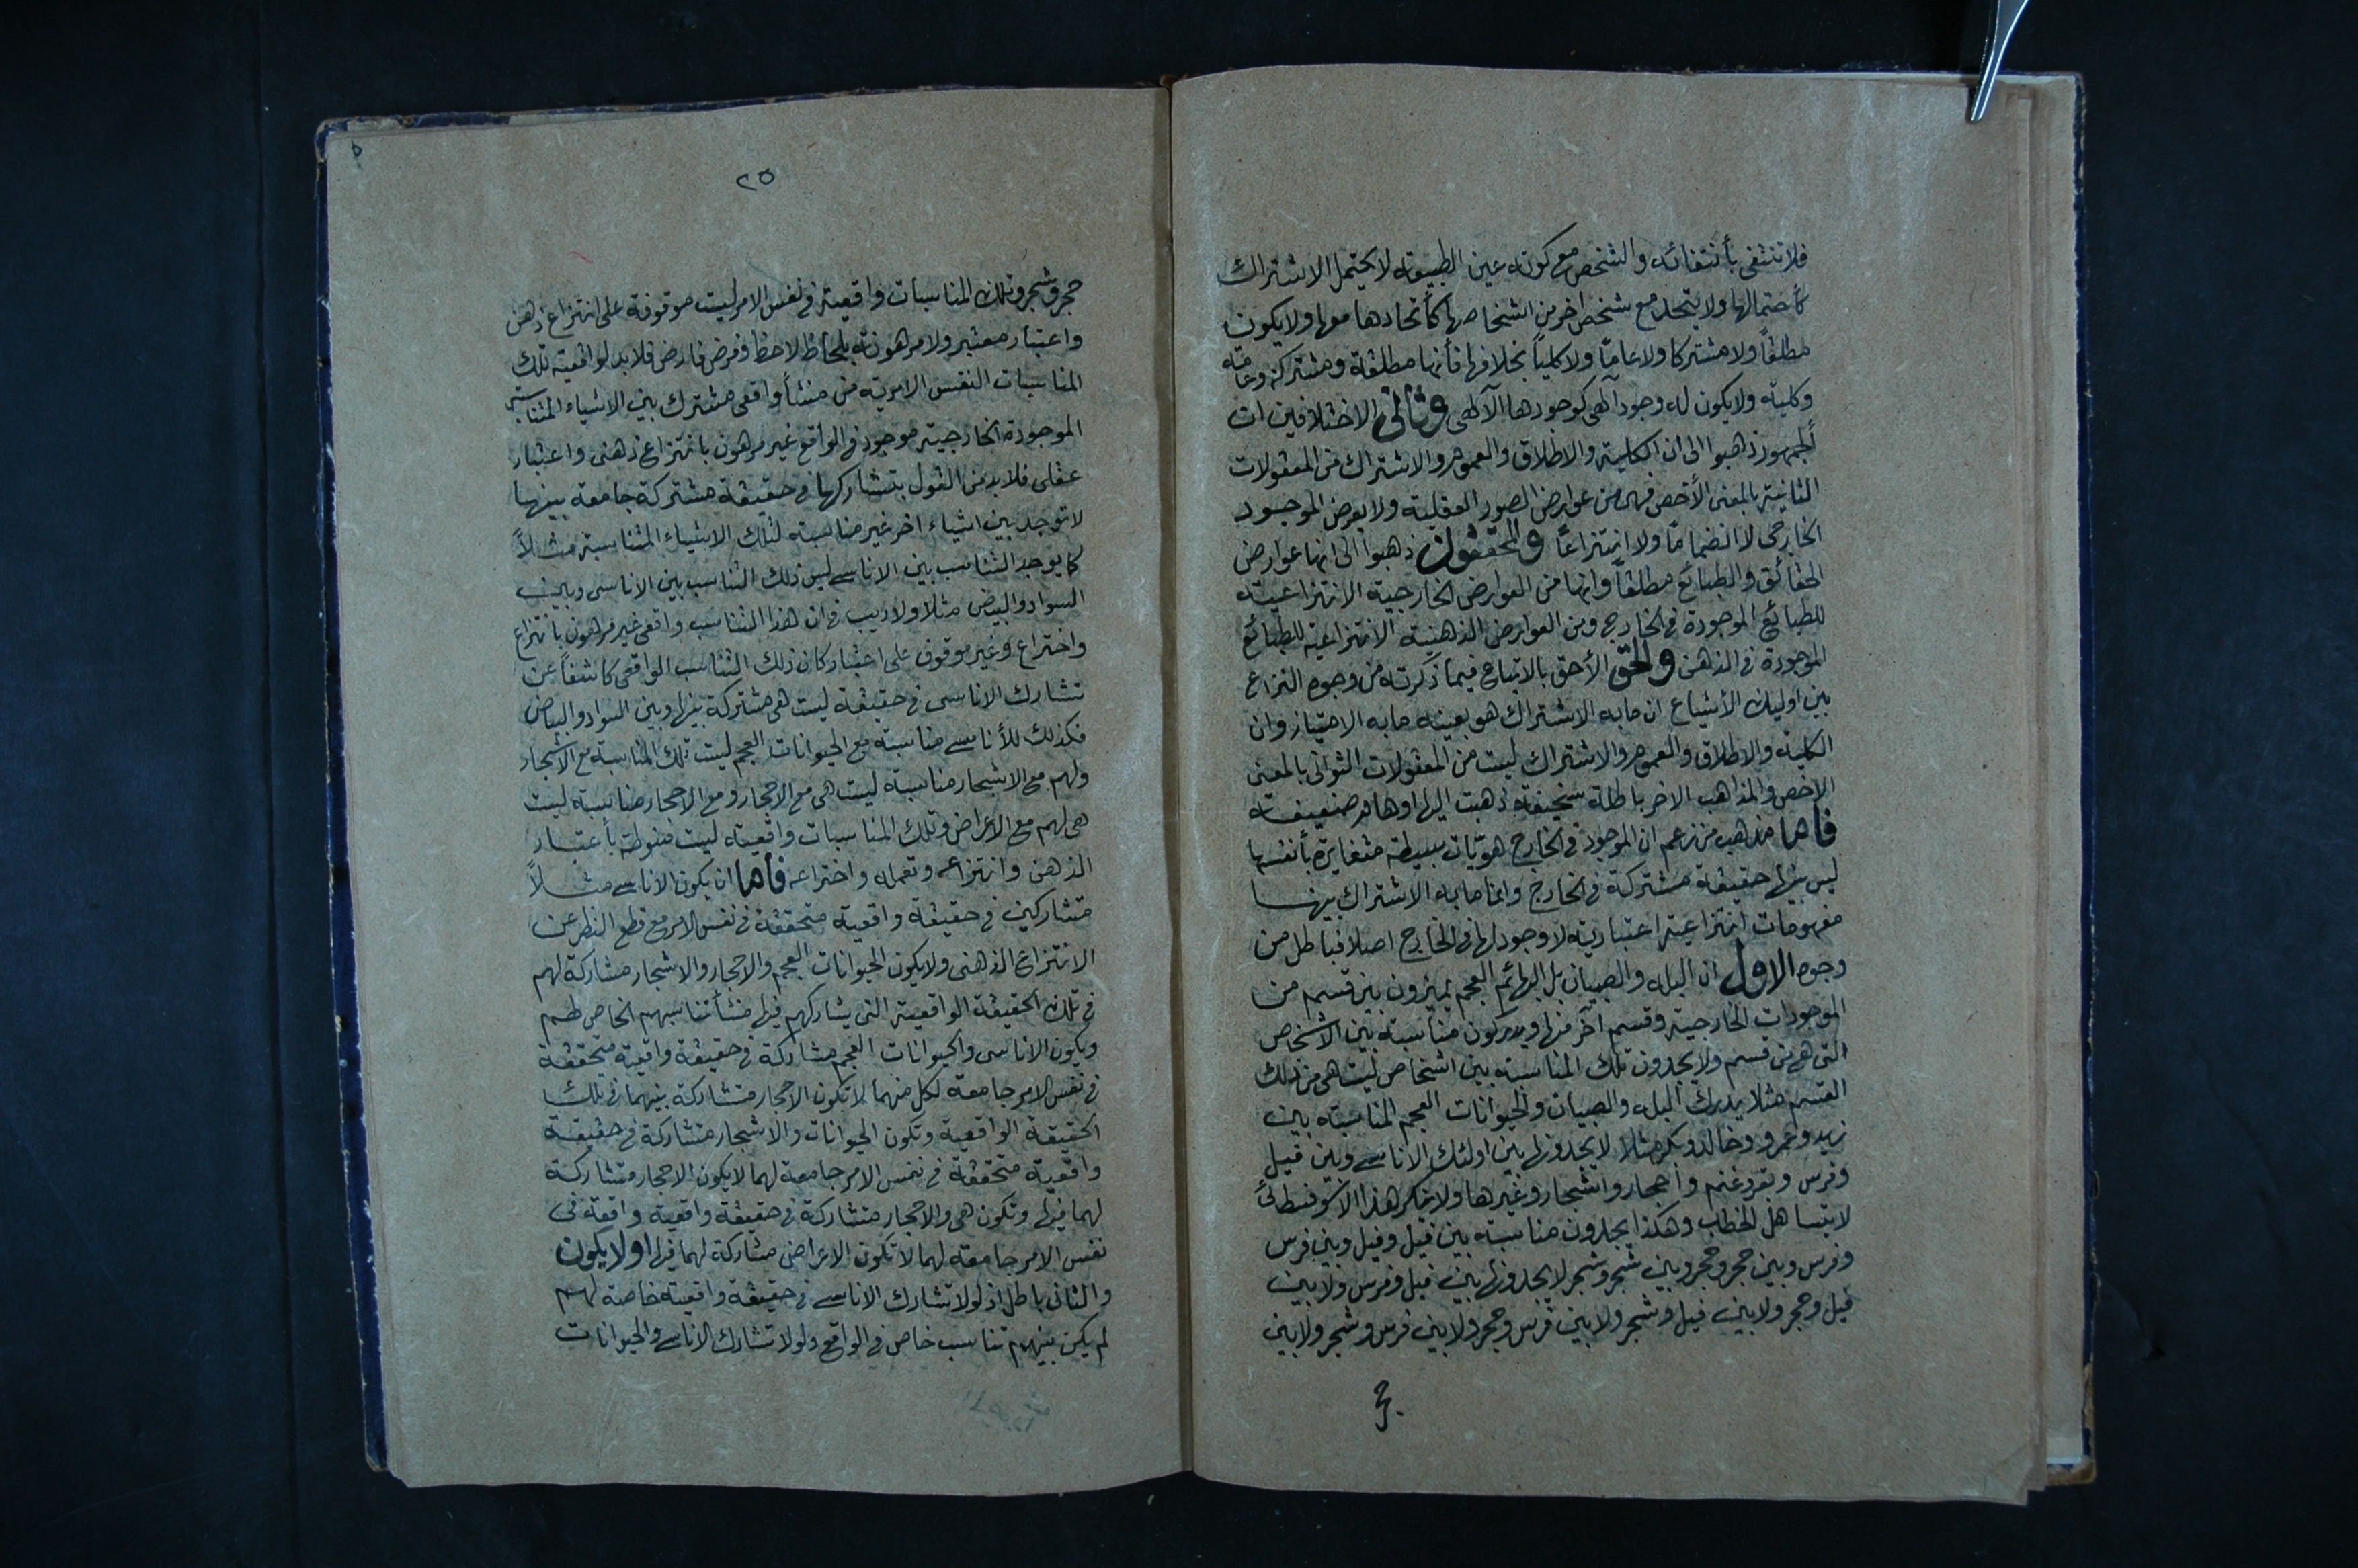 فلا تنتفى بأنتفائه والشخص مع كونه عين الطبيعة لا يحتمل الاشتراك
كأحتمالها ولا يتحد مع شخص اخر من اشخاصها كأتحادها معها ولا يكون
مطلقاً ولا مشتركا ولا عامّا ولا كلياً بخلافها فأنها مطلقة ومشتركة وعامّة
وكلية ولا يكون له وجود آلهى كوجودها الآلهى وثانى الاختلافين ان
الجمهور ذهبوا الى ان الكلية والاطلاق والعموم والاشتراك من المعقولات
الثانية بالمعنى الأخص فهى من عوارض الصور العقلية ولا يعرض الموجود
الخارجى لا انضمامًا ولا انتزاعًا والمحققون ذهبوا الى انها عوارض
الحقائق والطبائع مطلقاً وانها من العوارض الخارجية الانتزاعية
للطبائع الموجودة فى الخارج ومن العوارض الذهنية الانتزاعية للطبائع
الموجودة فى الذهن والحق الأحق بالاتباع فيما ذكرته من وجوه النزاع
بين اوليك الأشياع ان مابه الاشتراك هو بعينه مابه الامتياز وان
الكلية والاطلاق والعموم والاشتراك ليست من المعقولات الثوانى بالمعنى
الاخص والمذاهب الاخر باطلة سخيفة ذهبت اليها اوهام ضعيفة
فأما مذهب من زعم ان الموجود فى الخارج هويّات بسيطة متغايرة بأنفسها
ليس بينها حقيقة مشتركة فى الخارج وانما مابه الاشتراك بينها
مفهومات انتزاعية اعتبارية لا وجود لها فى الخارج اصلا فباطل من
وجوه الاول ان البله والصبيان بل البهائم العجم يميزون بين قسم من
الموجودات الخارجية وقسم آخر منها ويدركون مناسبة بين الاشخاص
التى هى من قسم ولا يجدون تلك المناسبة بين اشخاص ليست هى من ذلك
القسم مثلا يدرك البله والصبيان والحيوانات العجم المناسبة بين
زيد وعمرو وخالد وبكر مثلا لا يجدونها بين اولئك الاناسى وبين فيل
وفرس وبقر وغنم وأحجار واشجار وغيرها ولا ينكر هذا الا سوفسطائى
لا يتساهل الخطاب وهكذا يجدون مناسبة بين فيل وفيل وبين فرس
وفرس وبين حجر وحجر وبين شجر وشجر لا يجدونها بين فيل وفرس ولا بين
فيل وحجر ولا بين فيل وشجر ولا بين فرس وحجر ولا بين فرس وشجر ولا بين
٢٥
حجر وشجر وتلك المناسبات واقعية فى نفس الامر ليست موقوفة على انتزاع ذهن
واعتبار معتبر ولا مرهونة بلحاظ لاحظ وفرض فارض فلا بد لواقعية تلك
المناسبات النفس الامرية من منشأ واقعى مشترك بين الاشياء المتناسبة
الموجودة الخارجية موجود فى الواقع غير مرهون بانتزاع ذهنى واعتبار
عقلى فلا بد من القول بتشاركها فى حقيقة مشتركة جامعة بينها
لا توجد بين اشياء اخر غير مناسبة لتلك الاشياء المتناسبة مثلاً
كما يوجد التناسب بين الاناسى ليس ذلك التناسب بين الاناسى وبين
السواد والبياض مثلا ولا ريب فى ان هذا التناسب واقعى غير مرهون بانتزاع
واختراع وغير موقوف على اعتبار كان ذلك التناسب الواقعى كاشفاً عن
تشارك الاناسى فى حقيقة ليست هى مشتركة بينها وبين السواد والبياض
فكذلك للأناسى مناسبة مع الحيوانات العجم ليست تلك المناسبة مع الاشجار
ولهم مع الاشجار مناسبة ليست هى مع الاحجار ومع الاحجار مناسبة ليست
هى لهم مع الاعراض وتلك المناسبات واقعية ليست منوطة بأعتبار
الذهن وانتزاعه وتعمله واختراعه فأما ان يكون الاناسى مثلاً
متشاركين فى حقيقة واقعية متحققة فى نفس الامر مع قطع النظر عن
الانتزاع الذهنى ولا يكون الحيوانات العجم والاحجار والاشجار مشاركة لهم
فى تلك الحقيقة الواقعية التى يشاركهم فيها منشأ تناسبهم الخاص لهم
ويكون الاناسى والحيوانات العجم مشاركة فى حقيقة واقعية متحققة
فى نفس الامر جامعة لكل منهما لا تكون الاحجار متشاركة بينهما فى تلك
الحقيقة الواقعية وتكون الحيوانات والاشجار متشاركة فى حقيقة
واقعية متحققة فى نفس الامر جامعة لهما لا يكون الاحجار متشاركة
لهما فيها وتكون هى والاحجار متشاركة فى حقيقة واقعية واقعة فى
نفس الامر جامعة لهما لا تكون الاعراض مشاركة لهما فيها او لا يكون
والثانى باطل اذ لولا تشارك الاناسى فى حقيقة واقعية خاصة لهم
لم يكن بينهم تناسب خاص فى الواقع ولولا تشارك الاناسى والحيوانات